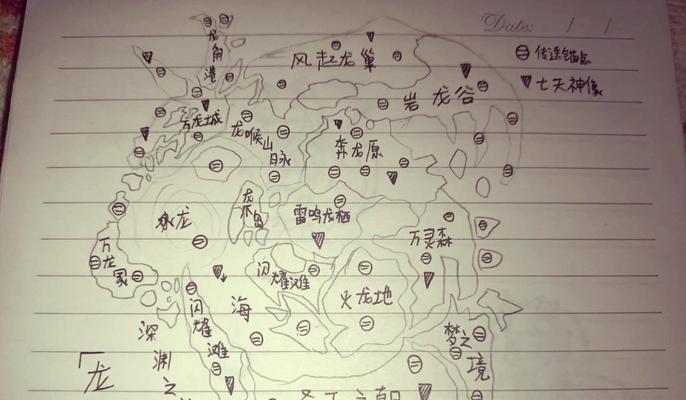 Date: / /
传送锚点
七天神像
龙角港
风起龙巢
岩龙谷
万龙城
龙喉山脉
奔龙原
龙木岛
雷鸣龙栖
水龙
万灵森
万龙冢
闪耀滩
海
火龙地
闪耀滩
深渊之
梦之境
「龙
之朝